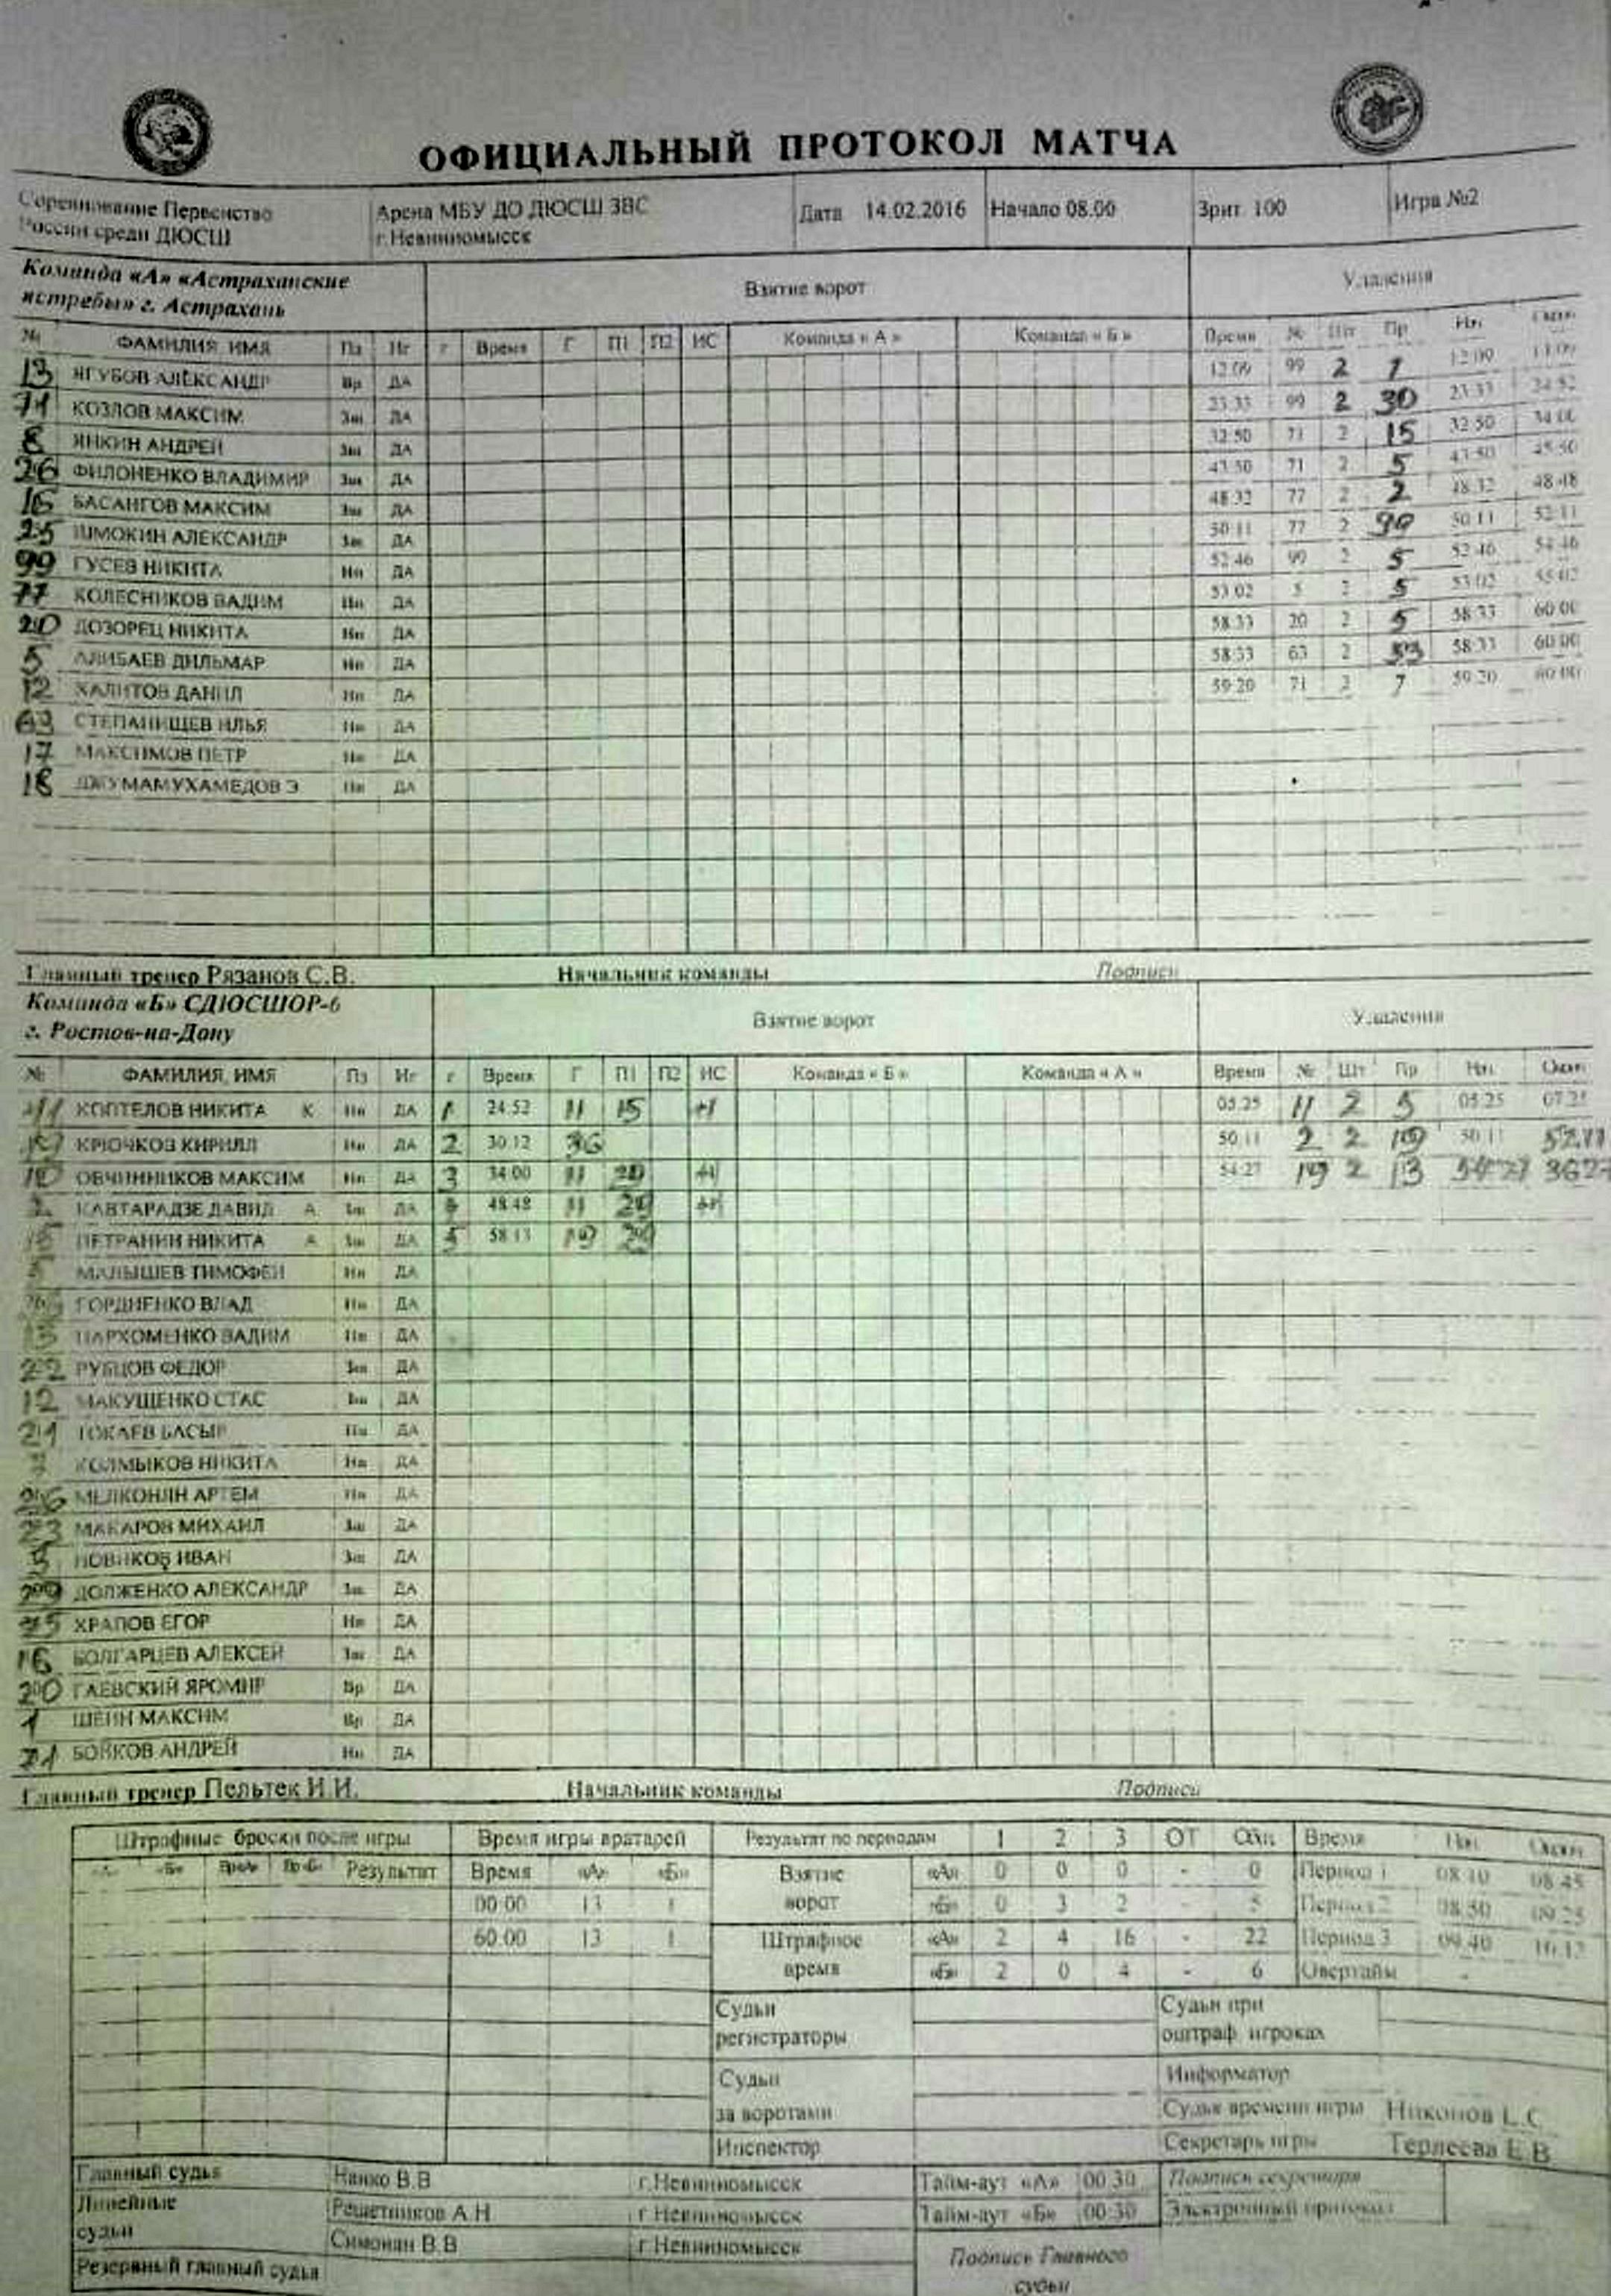 ОФИЦИАЛЬНЫЙ ПРОТОКОЛ МАТЧА
Соревнование Первенство России среди ДЮСШ
Арена МБУ ДО ДЮСШ ЗВС г.Невинномысск
Дата 14.02.2016 Начало 08.00 Зрит 100 Игра №2
Команда «А» «Астраханские ястребы» г. Астрахань
Взятие ворот Удаления
№ ФАМИЛИЯ, ИМЯ Пз Иг г Время Г П1 П2 ИС Команда « А » Команда « Б » Время № Шт Пр Нач Окон
13 ЯГУБОВ АЛЕКСАНДР Вр ДА 12 09 99 2 7 12 09
71 КОЗЛОВ МАКСИМ Зщ ДА 23 33 99 2 30 23 33 24 52
8 ЯНКИН АНДРЕЙ Зщ ДА 32 50 71 2 15 32 50 34 00
26 ФИЛОНЕНКО ВЛАДИМИР Зщ ДА 43 50 71 2 5 43 50 45 50
16 БАСАНГОВ МАКСИМ Зщ ДА 48 32 77 2 2 48 32 48 48
25 ШМОКИН АЛЕКСАНДР Зщ ДА 50 11 77 2 50 11 52 11
99 ГУСЕВ НИКИТА Нп ДА 52 46 99 2 5 52 46 54 46
77 КОЛЕСНИКОВ ВАДИМ Нп ДА 53 02 5 2 5 53 02 55 02
20 ДОЗОРЕЦ НИКИТА Нп ДА 58 33 20 2 5 58 33 60 00
5 АЛИБАЕВ ДИЛЬМАР Нп ДА 58 33 63 2 58 33 60 00
12 ХАЛИТОВ ДАНИЛ Нп ДА 59 20 71 2 7 59 20 60 00
63 СТЕПАНИЩЕВ ИЛЬЯ Нп ДА
17 МАКСИМОВ ПЕТР Нп ДА
18 ДЖУМАМУХАМЕДОВ Э Нп ДА
Главный тренер Рязанов С.В. Начальник команды Подписи
Команда «Б» СДЮСШОР-6 г. Ростов-на-Дону
Взятие ворот Удаления
№ ФАМИЛИЯ, ИМЯ Пз Иг г Время Г П1 П2 ИС Команда « Б » Команда « А » Время № Шт Пр Нач Окон
11 КОПТЕЛОВ НИКИТА К Нп ДА 1 24 52 11 15 +1 05 25 11 2 5 05 25 07 25
КРЮЧКОВ КИРИЛЛ Нп ДА 2 30 12 36 50 11 2 2 19 50 11 52 11
ОВЧИННИКОВ МАКСИМ Нп ДА 3 34 00 11 +1 54 27 19 2 13 54 27
КАВТАРАДЗЕ ДАВИД А Зщ ДА 48 48 11 +1
ПЕТРАНИН НИКИТА А Зщ ДА 5 58 13 19
МАЛЫШЕВ ТИМОФЕЙ Нп ДА
ГОРДИЕНКО ВЛАД Нп ДА
ПАРХОМЕНКО ВАДИМ Нп ДА
22 РУБЦОВ ФЕДОР Зщ ДА
12 МАКУЩЕНКО СТАС Зщ ДА
21 ТОКАЕВ БАСЫР Нп ДА
КОЛМЫКОВ НИКИТА Нп ДА
МЕЛКОНЯН АРТЕМ Нп ДА
23 МАКАРОВ МИХАИЛ Зщ ДА
НОВИКОВ ИВАН Зщ ДА
ДОЛЖЕНКО АЛЕКСАНДР Зщ ДА
ХРАПОВ ЕГОР Нп ДА
16 БОЛГАРЦЕВ АЛЕКСЕЙ Зщ ДА
20 ГАЕВСКИЙ ЯРОМИР Вр ДА
1 ШЕИН МАКСИМ Вр ДА
БОЙКОВ АНДРЕЙ Нп ДА
Главный тренер Пельтек И.И. Начальник команды Подписи
Штрафные броски после игры Время игры вратарей Результат по периодам 1 2 3 ОТ Общ Время Нач Окон
«А» «Б» Вр«А» Вр«Б» Результат Время «А» «Б» Взятие ворот «А» 0 0 0 - 0 Период 1 08 10 08 45
00:00 13 1 «Б» 0 3 2 - 5 Период 2 08 50 09 25
60:00 13 1 Штрафное время «А» 2 4 16 - 22 Период 3 09 40 10 12
«Б» 2 0 4 - 6 Овертайм -
Судьи регистраторы Судьи при оштраф. игроках
Судьи за воротами Информатор
Судья времени игры Никонов
Инспектор Секретарь игры Е.В
Главный судья Нанко В.В г.Невинномысск Тайм-аут «А» 00 30 Подпись секретаря
Линейные судьи Решетников А.Н г.Невинномысск Тайм-аут «Б» 00:30 Электронный протокол
Симонян В.В г.Невинномысск
Резервный главный судья Подпись Главного судьи